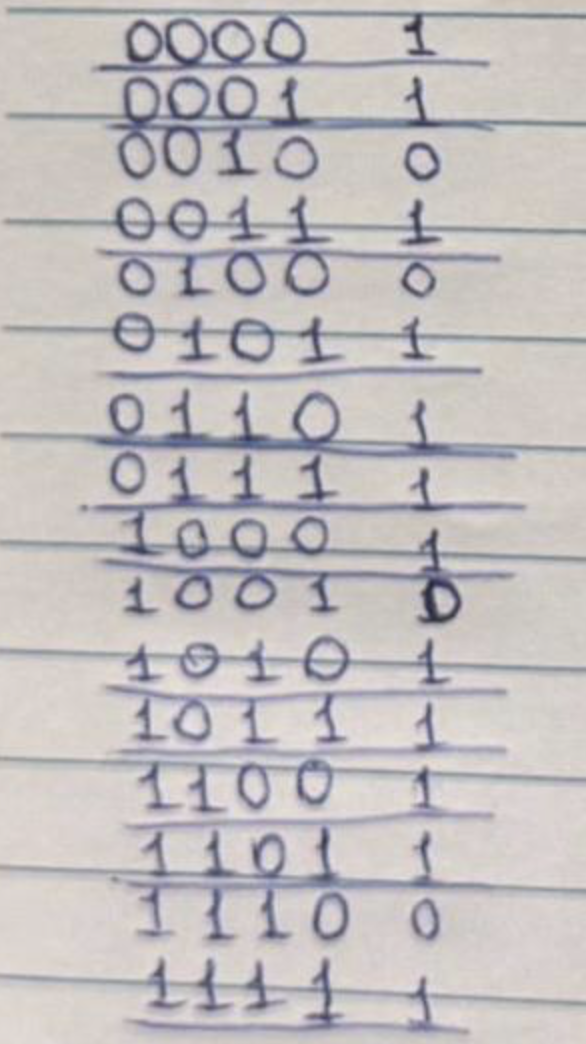 0000 1
0001 1
0010 0
0011 1
0100 0
0101 1
0110 1
0111 1
1000 1
1001 0
1010 1
1011 1
1100 1
1101 1
1110 0
1111 1